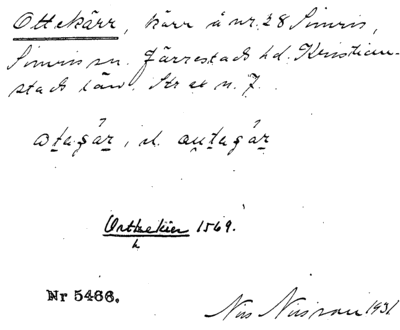 Ottekärr, kärr å nr. 28 Simris,
Simris sn. Järrestads hd. Kristian-
stads län. Str ax n. 7.
Orttekier 1569.
h
Nr 5466.
Nils Nilsson 1931